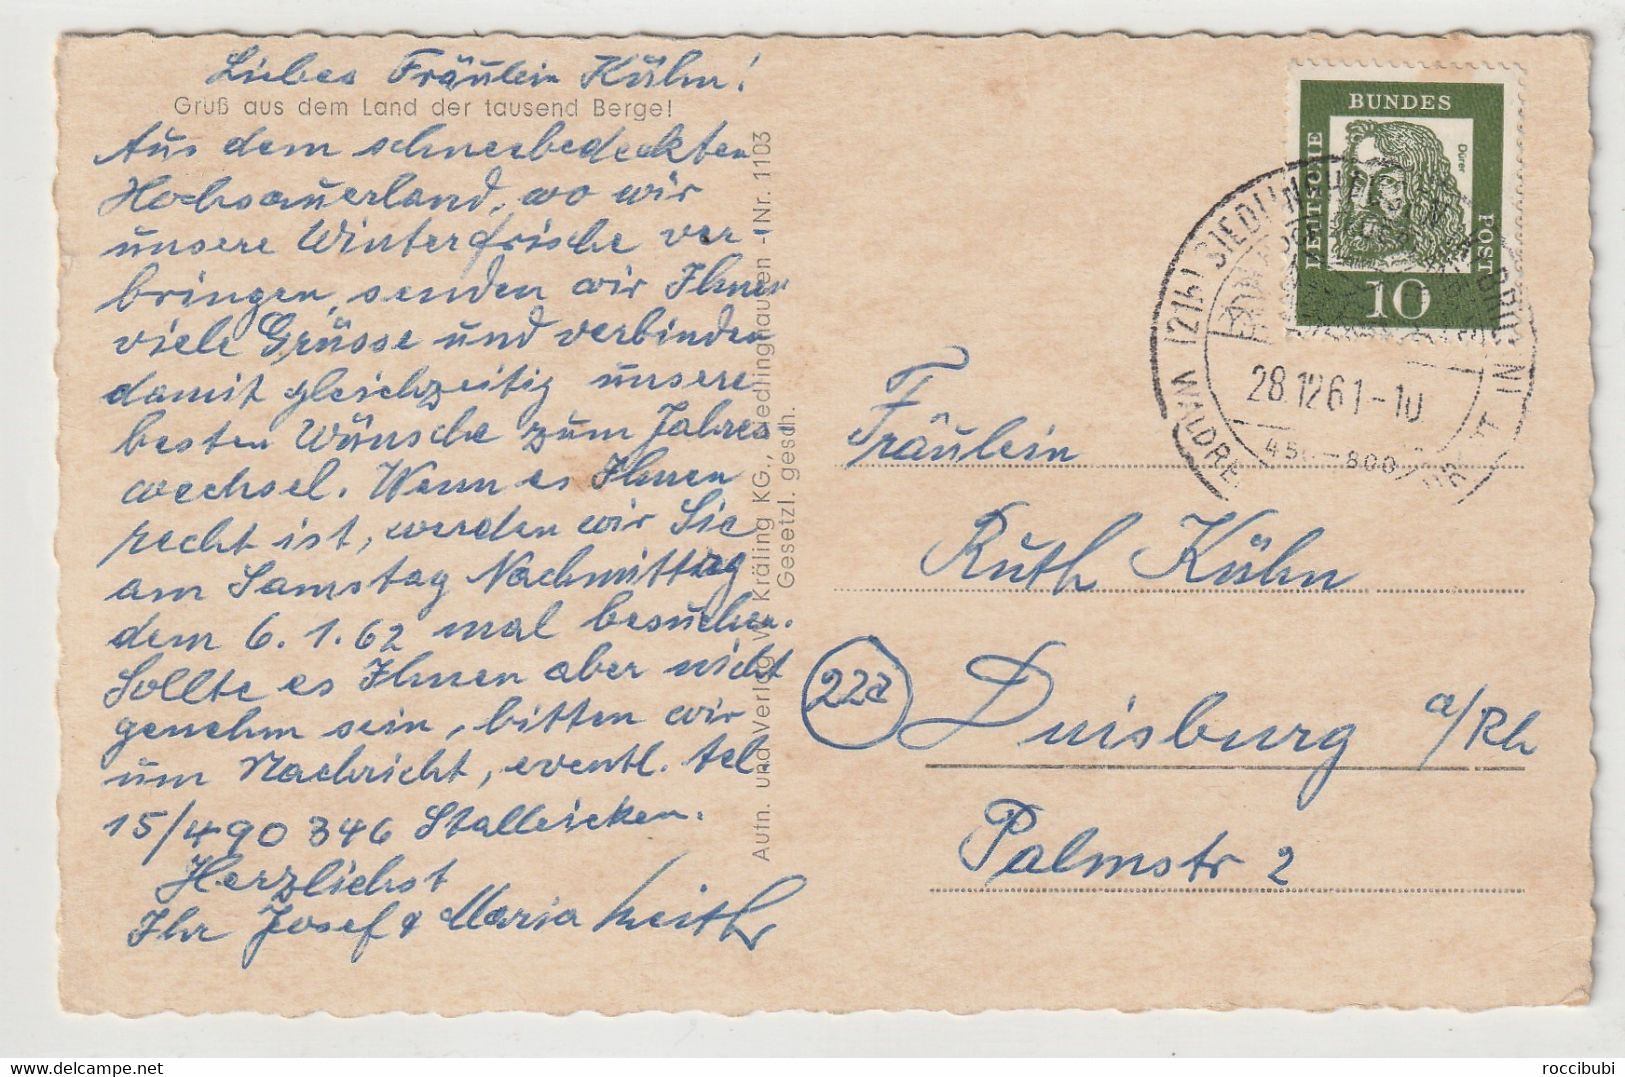 Liebes Fräulein Kühn!
Gruß aus dem Land der tausend Berge!
Aus dem schneebedeckten
Hochsauerland, wo wir
unsere Winterfrische ver-
bringen, senden wir Ihnen
viele Grüsse und verbinden
damit gleichzeitig unsere
besten Wünsche zum Jahres
wechsel. Wenn es Ihnen
recht ist, werden wir Sie
am Samstag Nachmittag
dem 6.1.62 mal besuchen.
Sollte es Ihnen aber nicht
genehm sein, bitten wir
um Nachricht, eventl. tel.
15/490346
Herzlichst
Ihr Josef & Maria
Aufn. und Verlag W. Kräling KG., Siedlinghausen - Nr. 1103
Gesetzl. gesch.
DEUTSCHE
BUNDES
POST
Dürer
10
28.12.61-10
Fräulein
Ruth Kühn
22a
Duisburg a/Rh
Palmstr 2
roccibubi